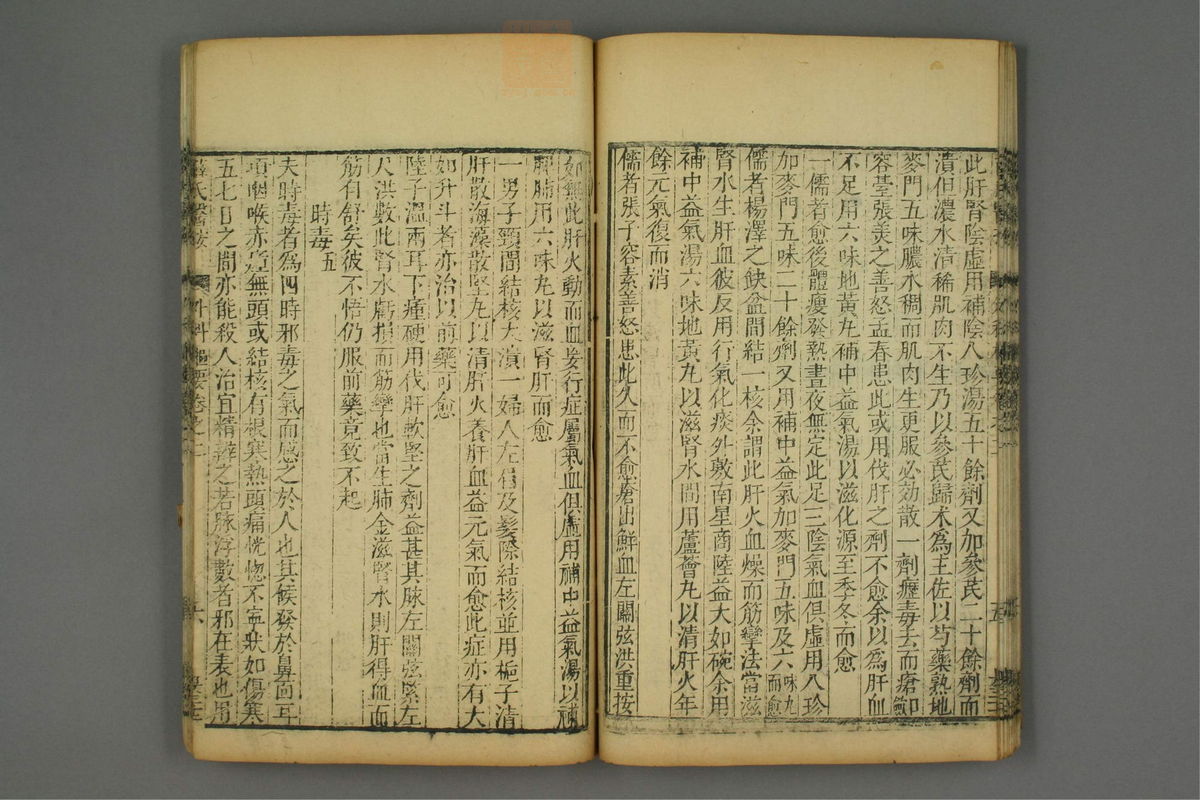 此肝腎陰虛用補陰八珍湯五十餘劑又加參芪二十餘劑而
潰但濃水清稀肌肉不生乃以參芪歸朮為主佐以芍藥熟地
麥門五味膿水稠而肌肉生更服必効散一劑癧毒去而瘡卽
容臺張美之善怒孟春患此或用伐肝之劑不愈余以為肝血
不足用六味地黃丸補中益氣湯以滋化源至季冬而愈
一儒者愈後體瘦發熱晝夜無定此足三陰氣血俱虛用八珍
加麥門五味二十餘劑又用補中益氣加麥門五味及六味丸而愈
儒者楊澤之缺盆間結一核余謂此肝火血燥而筋攣法當滋
腎水生肝血彼反用行氣化痰外敷南星商陸益大如碗余用
補中益氣湯六味地黃丸以滋腎水間用蘆薈丸以清肝火年
餘元氣復而消
儒者張子容素善怒患此久而不愈瘡出鮮血左關弦洪重按
如無此肝火動而血妄行症屬氣血俱虛用補中益氣湯以補
脾肺用六味丸以滋腎肝而愈
一男子頸間結核大潰一婦人左右及髮際結核並用梔子清
肝散海藻散堅丸以清肝火養肝血益元氣而愈此症亦有大
如升斗者亦治以前藥可愈
陸子溫兩耳下腫硬用伐肝軟堅之劑益甚其脉左關弦緊左
尺洪數此腎水虧損而筋攣也當生肺金滋腎水則肝得血而
筋自舒矣彼不悟仍服前藥竟致不起
時毒五
夫時毒者為四時邪毒之氣而感之於人也其候發於鼻面耳
項咽喉赤腫無頭或結核有根寒熱頭痛恍惚不寧狀如傷寒
五七日之間亦能殺人治宜精辨之若脉浮數者邪在表也用
薛氏醫按
外科樞要卷之二
六